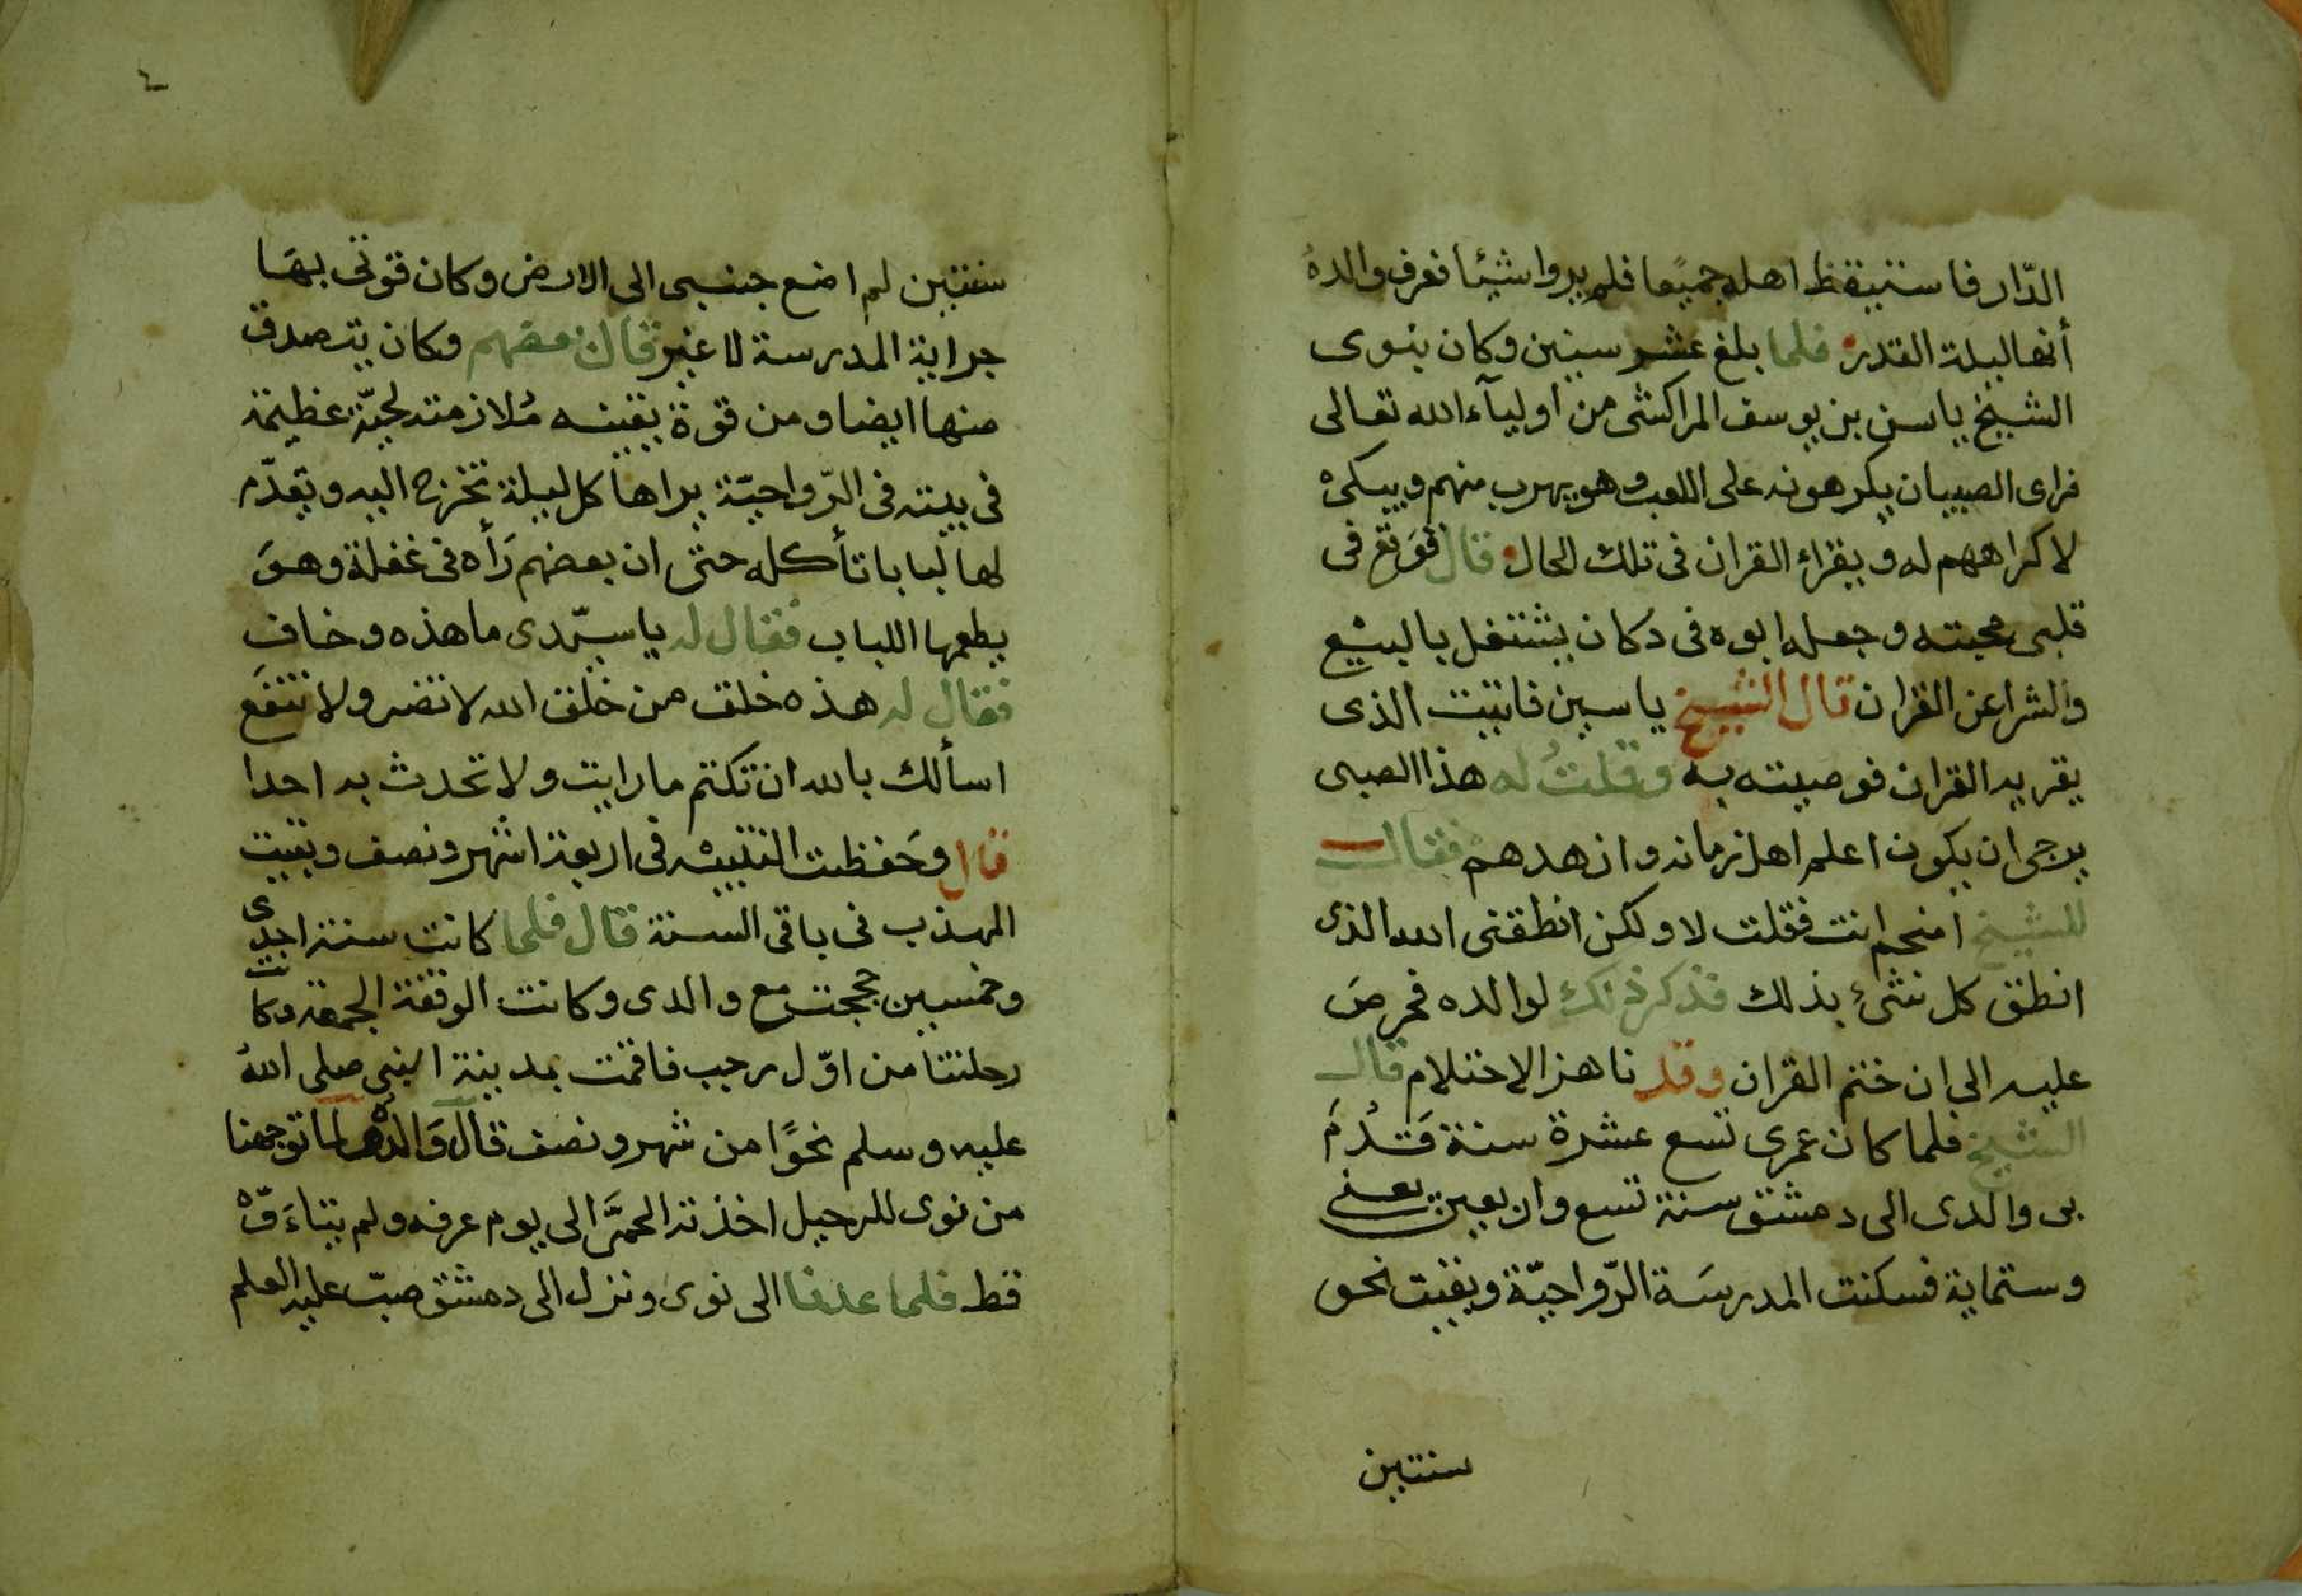 الدّار فاستيقظ اهله جميعا فلم يروا شيئا فعرف والده
أنها ليلة القدر فلما بلغ عشر سنين وكان بنوى
الشيخ ياسن بن يوسف المراكشى من اوليآء الله تعالى
فراى الصبيان يكرهونه على اللعب وهو يهرب منهم ويبكى
لاكراههم له ويقراء القران فى تلك الحال قال فوقع فى
قلبى محبته وجعله ابوه فى دكان يشتغل بالبيع
والشرا عن القران قال الشيخ ياسين فاتيت الذى
يقريه القران فوصيته به وقلتُ له هذا الصبى
يرجى ان يكون اعلم اهل زمانه وازهدهم فقال
للشيخ امنجم انت فقلت لا ولكن انطقنى الله الذى
انطق كل شئ بذلك فذكر ذلك لوالده فحرصَ
عليه الى ان ختم القران وقد ناهز الاحتلام قال
الشيخ فلما كان عمرى تسع عشرة سنة قَدُمَ
بى والدى الى دمشق سنة تسع واربعين يعنى
وستماية فسكنت المدرسَة الرّواحيّة وبقيت نحو
سنتين
٢
سنتين لم اضع جنبى الى الارض وكان قوتى بهَا
جراية المدرسة لا غير قال بعضهم وكان يتصدق
منها ايضا ومن قوة يقينه مُلازمته لحيّة عظيمة
فى بيته فى الرّواحيّة يراها كل ليلة تخرج اليه ويقدّم
لها لبابا تأكله حتى ان بعضهم رَأه فى غفلة وهوَ
يطعمها اللباب فقال له يا سيّدى ما هذه وخاف
فقال له هذه خلق من خلق الله لا تضر ولا تنفَع
اسألك بالله ان تكتم ما رايت ولا تحدث به احدا
قال وحَفظت التنبيه فى اربعة اشهر ونصف وبقيت
المهذب فى باقى السنة قال فلما كانت سنة احدى
وخمسين حججت مع والدى وكانت الوقفة الجمعة وكانت
رحلتنا من اوّل رجب فاقمت بمدينة النبى صلى اللهُ
عليه وسلم نحوًا من شهر ونصف قال وَالدُه لما توجهنا
من نوى للرحيل اخذته الحمىَّ الى يوم عرفه ولم يتاءَوّه
قط فلما عدنا الى نوى ونزل الى دمشق صبّ عليه العلم